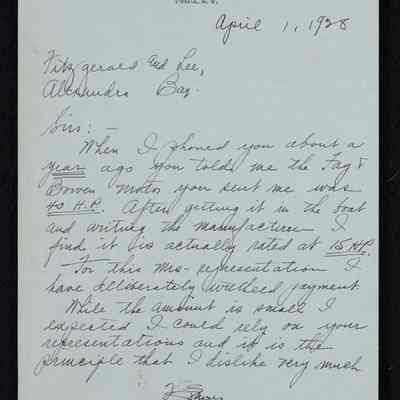 April 1, 1928
Fitzgerald and Lee,
Alexandra Bay.
Sirs: —
When I phoned you about a
year ago you told me the Fay &
Bowen motor you sent me was
40 H.P. After getting it in the boat
and writing the manufacturer I
find it is actually rated at 15 H.P.
For this mis-representation I
have deliberately witheed payment
While the amount is small I
expected I could rely on your
representations and it is the
principle that I dislike very much